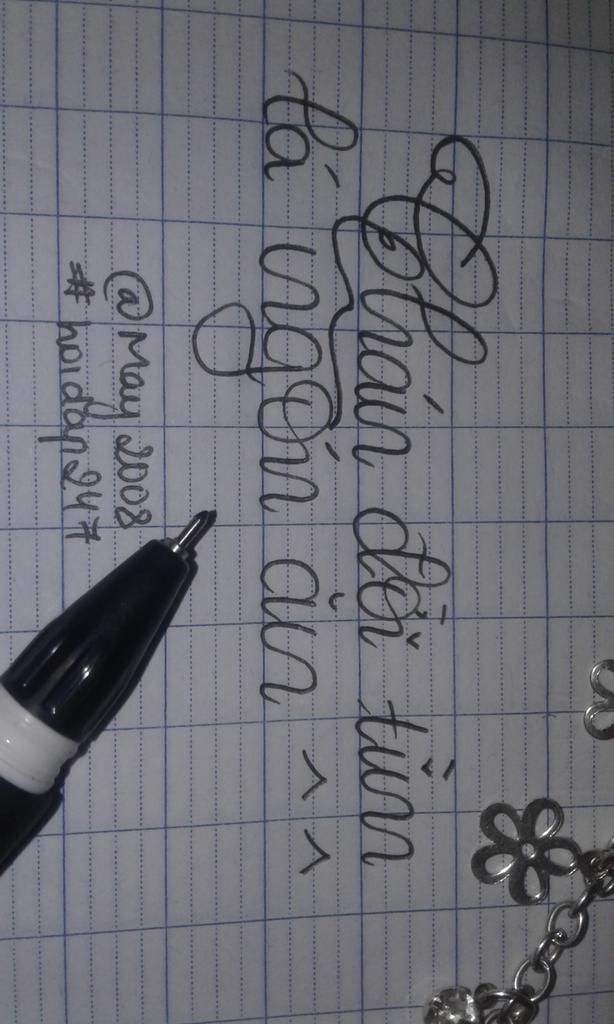 Chán đời tìm
lá ngón ăn ^ ^
@May 2008
# hoidap247